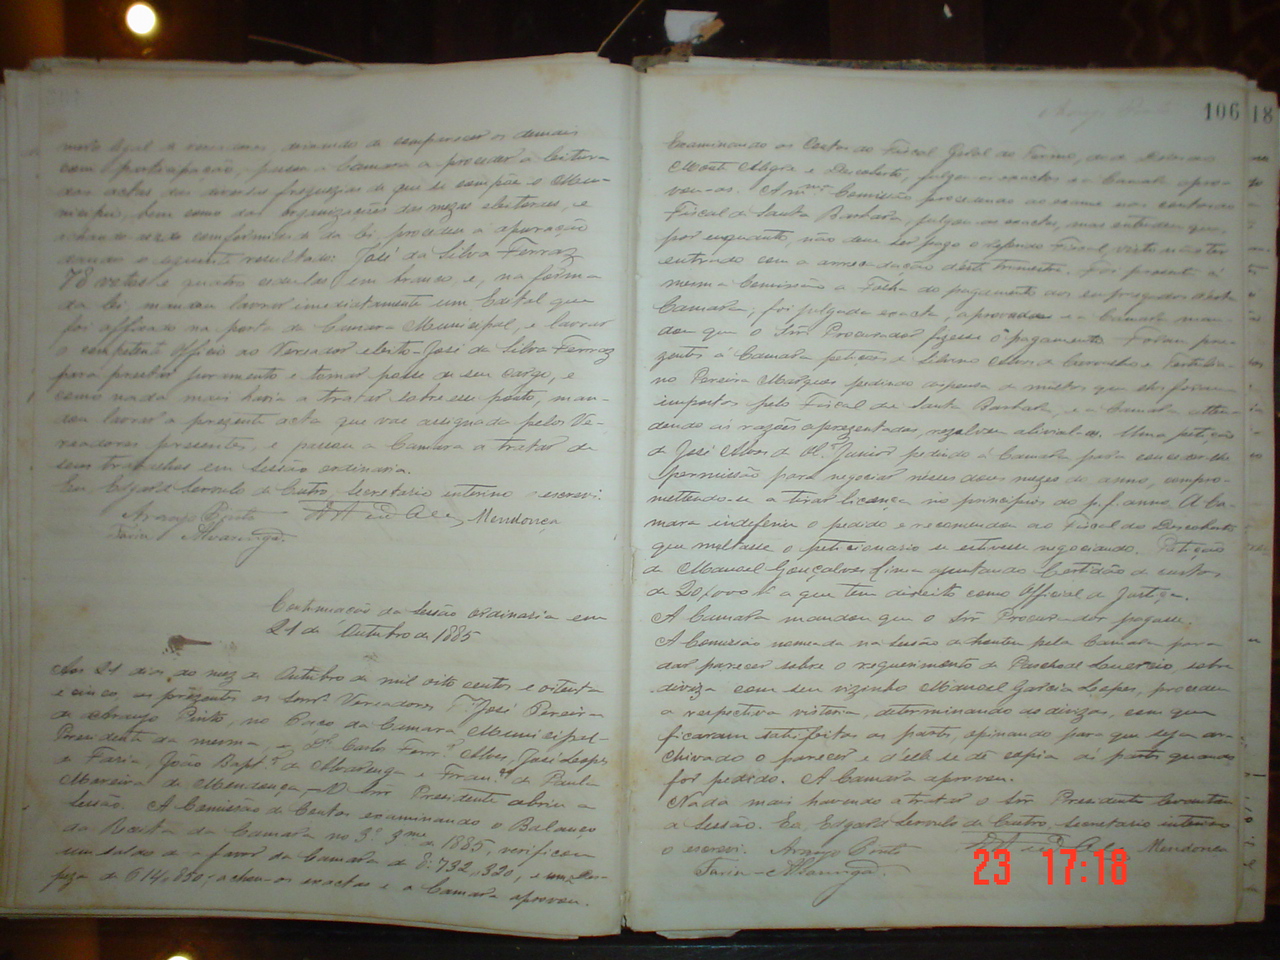 com participação, passou a Camara a proceder a leitura
das actas das diversas freguezias de que se compõe o Muni-
cipio, bem como das organizações das mezas eleitoraes, e
achando conformidade da lei, procedeu a apuração
dando o seguinte resultado: José da Silva Ferraz
78 votos e quatro cedulas em branco, e, na forma
da lei, mandou lavrar imediatamente um Edital que
foi affixado na porta da Camara Municipal, e lavrar
o competente Officio ao Vereador eleito José da Silva Ferraz
para prestar juramento e tomar posse de seu cargo, e
como nada mais havia a tratar sobre esse ponto, man-
dou lavrar a prezente acta que vae assignada pelos Ve-
readores prezentes, e passou a Camara a tratar de
seus trabalhos em Sessão ordinaria.
Eu, Edgard Servulo de Castro, Secretario interino o escrevi.
Araujo Pinto Mendonça
Faria Alvarenga
Continuação da Sessão Ordinaria em
21 de Outubro de 1885
Aos 21 dias do mez de Outubro de mil oito centos e oitenta
e cinco, prezentes os Senrs Vereadores José Pereira
de Araujo Pinto, no Paço da Camara Municipal
Prezidente da mesma, e, Dr Carlos Ferrª Alves, José Lopes
e Faria, João Baptª de Alvarenga e Franco de Paula
Moreira de Mendonça, O Snr Prezidente abrio a
Sessão. A Comissão de Contas examinando o Balanço
da Receita da Camara no 3º 3me de 1885, verificou
um saldo a favor da Camara de 8:732,320, e um a des-
peza de 614,850; achou-os exactos e a Camara aprovou.
106
18
Araujo Pinto
Examinando as Contas do Fiscal Geral do Termo, de
Monte Alegre e Descoberto, julgou-os exactos e a Camara apro-
vou-os. A mma Comissão procedendo ao exame nas contas do
Fiscal de Santa Barbara, julgou-as exactas, mas entendeu que
por enquanto, não deve ser pago o referido Fiscal, visto não ter
entrado com a arrecadação deste trimestre. Foi prezente á
mesma Comissão a Folha de pagamento dos empregados desta
Camara, foi julgada exacta, aprovada e a Camara man-
dou que o Snr Procurador fizesse o pagamento. Foram pre-
zentes á Camara petições de Silverio Carvalho e
no Pereira Marques pedindo dispensa de multas que lhes foram
impostas pelo Fiscal de Santa Barbara, e a Camara atten-
dendo as razões aprezentadas, rezolveu alivial-os. Uma petição
de José Alves de Olª Junior pedindo á Camara para conceder-lhe
permissão para negociar nesses dous mezes do anno, compro-
mettendo-se a tirar licença no principio do p. f. anno. A Ca-
mara indeferiu o pedido e recomendou ao Fiscal do Descoberto
que multasse o peticionario se estivesse negociando. Petição
de Manoel Gonçalves Lima ajuntando Certidão de custas
de 20,000 a que tem direito como Official de Justiça.
A Camara mandou que o Snr Procurador pagasse.
A Comissão nomeada na Sessão de hontem pela Camara para
dar parecer sobre o requerimento de Paschoal sobre
diviza com seu vizinho Manoel Garcia Lopes, procedeu
a respectiva vistoria, determinando as divizas, com que
ficaram satisfeitas as partes, opinando para que seja ar-
chivado o parecer e d'elle se dê copia ás partes quando
for pedido. A Camara aprovou.
Nada mais havendo a tratar o Snr Prezidente levantou
a Sessão. Eu, Edgard Servulo de Castro, Secretario interino
o escrevi. Araujo Pinto Mendonça
Faria Alvarenga
23 17:18